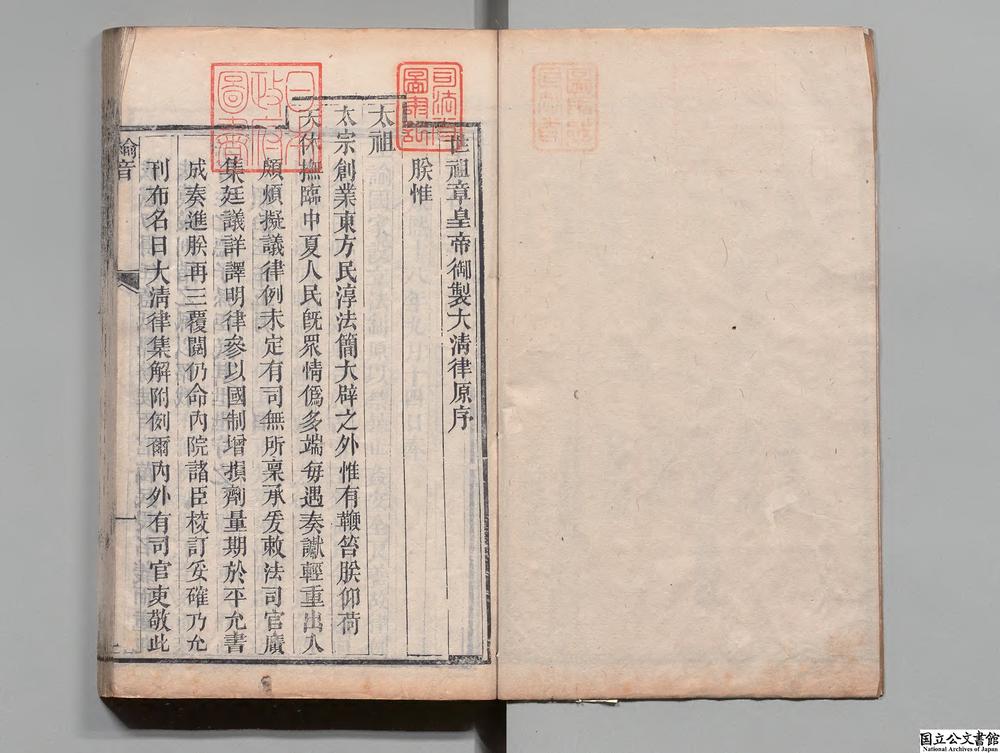 世祖章皇帝御製大清律原序
朕惟
太祖
太宗創業東方民淳法簡大辟之外惟有鞭笞朕仰荷
天休撫臨中夏人民旣眾情僞多端每遇奏讞輕重出入
頗煩擬議律例未定有司無所稟承爰敕法司官廣
集廷議詳譯明律參以國制增損劑量期於平允書
成奏進朕再三覆閱仍命內院諸臣校訂妥確乃允
刊布名曰大清律集解附例爾內外有司官吏敬此
諭音
一
日本
政府
圖書
司法省
圖書記
国立公文書館
National Archives of Japan